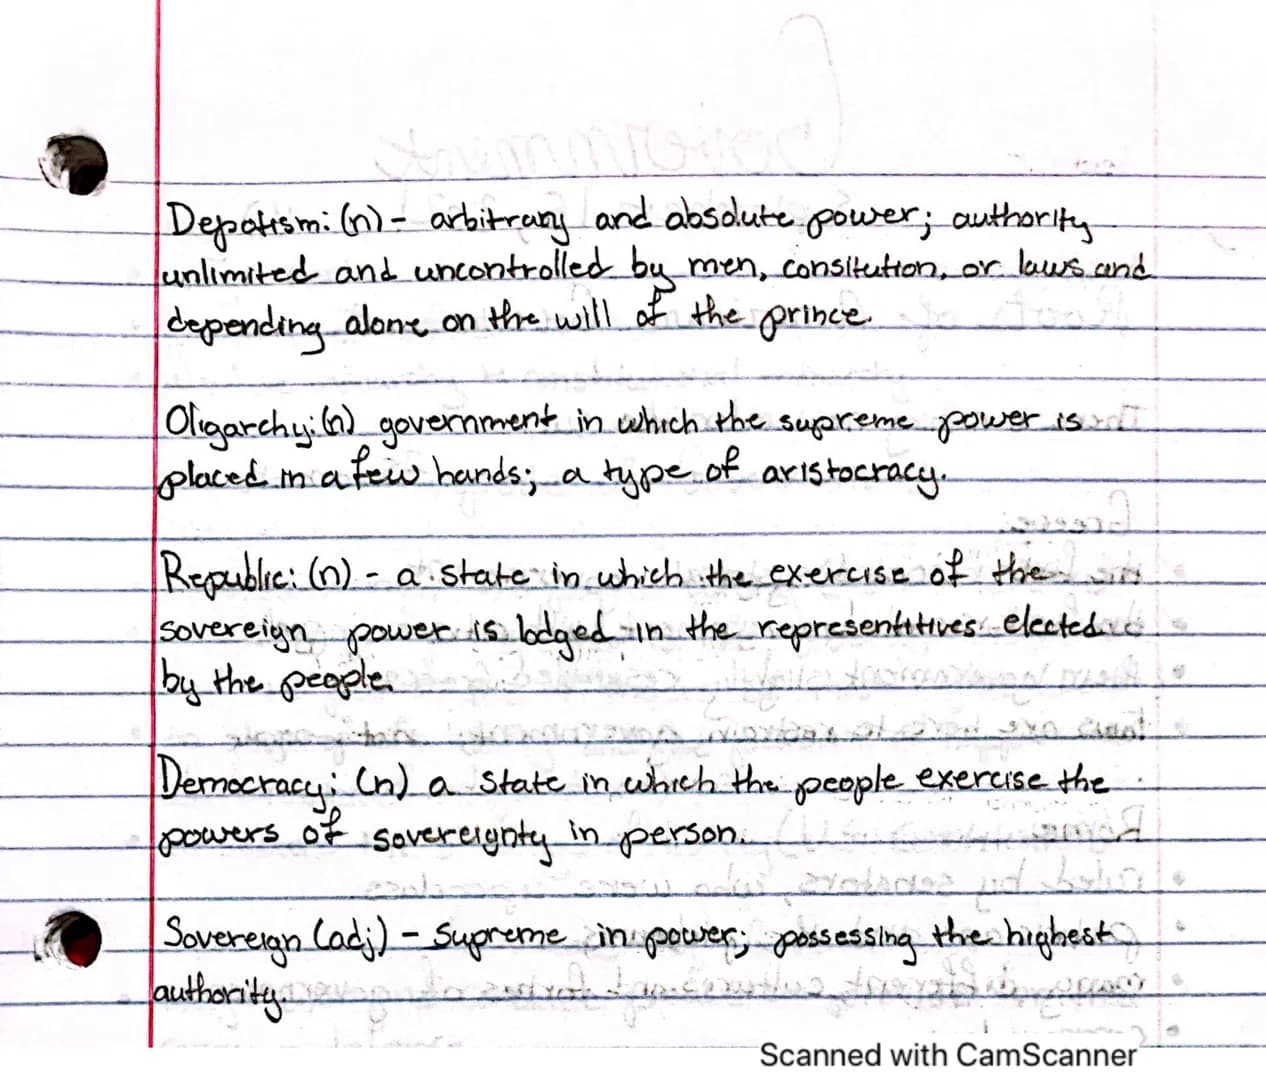 Depotism: (n) - arbitrary and absolute power; authority
unlimited and uncontrolled by men, consitution, or laws and
depending alone on the will of the prince.
Oligarchy: (n) government in which the supreme power is
placed in a few hands; a type of aristocracy.
Republic: (n) - a state in which the exercise of the
sovereign power is lodged in the representitives elected
by the people.
Democracy: (n) a state in which the people exercise the
powers of sovereignty in person.
Sovereign (adj) - Supreme in power; possessing the highest
authority.
Scanned with CamScanner